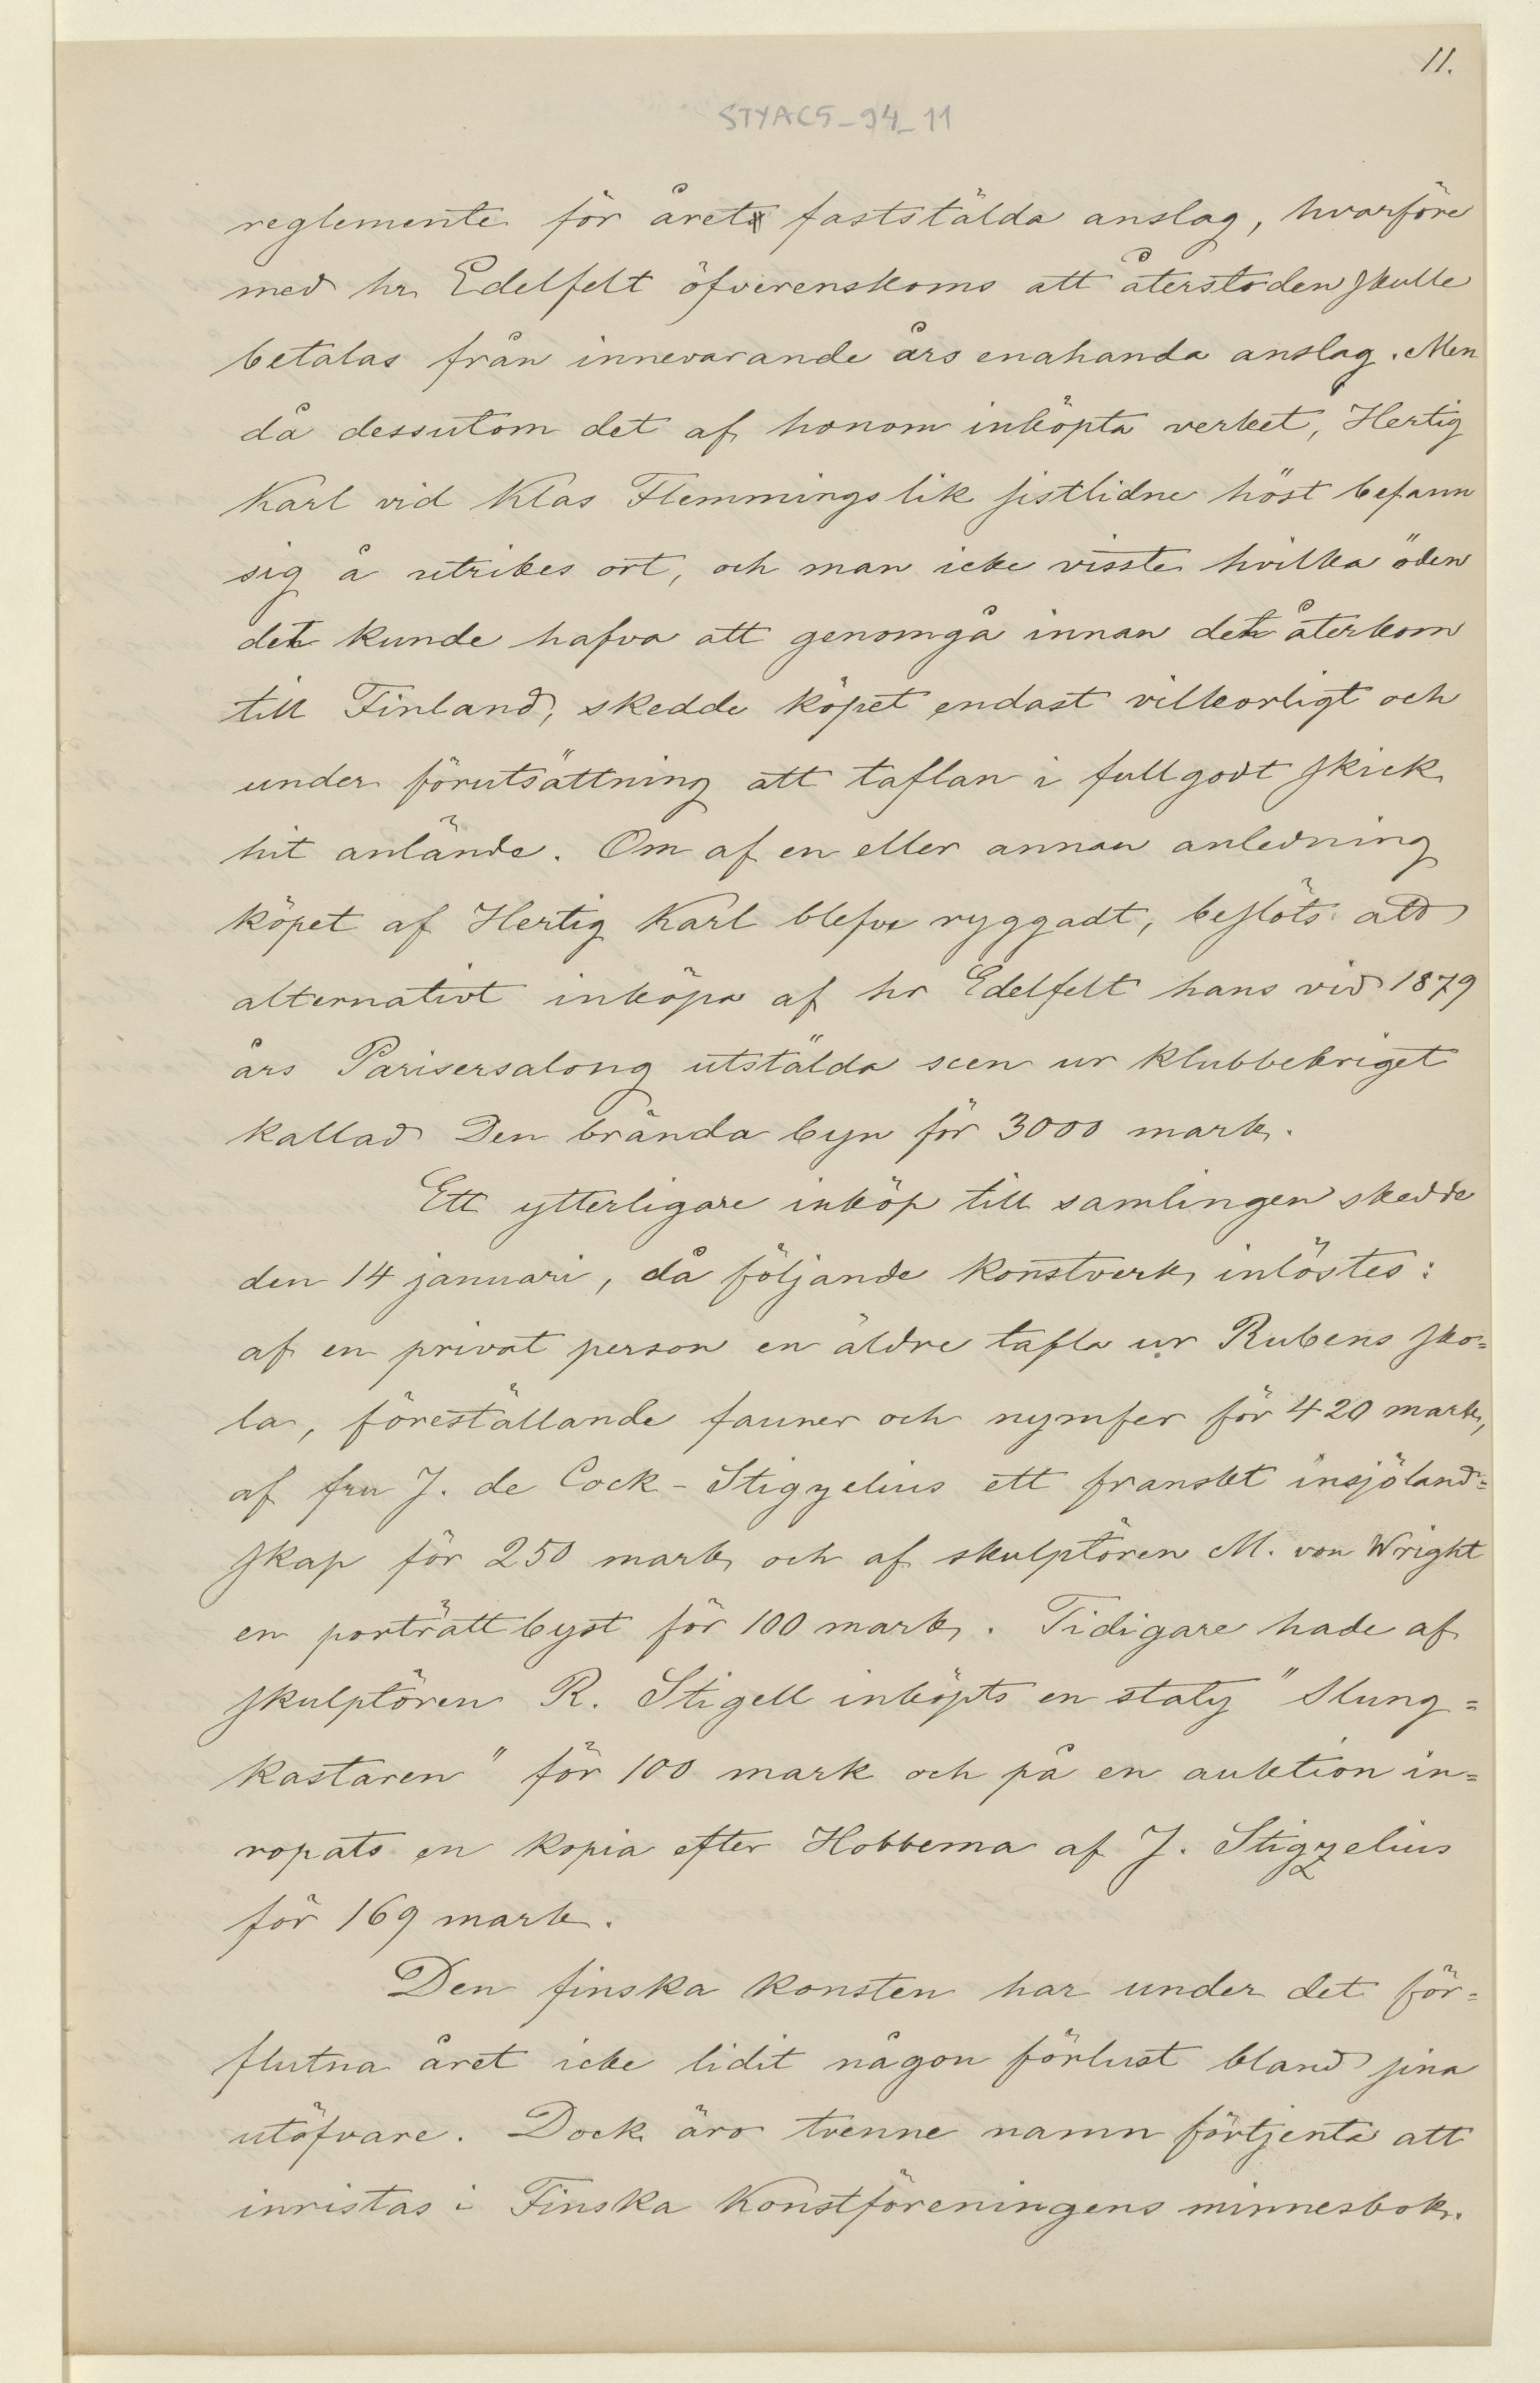 11.
STYAC5_94_11
reglemente för året faststälda anslag, hvarföre
med hr Edelfelt öfverenskoms att återstoden skulle
betalas från innevarande års enahanda anslag. Men
då dessutom det af honom inköpta verket, Hertig
Karl vid Klas Flemmings lik sistlidne höst befann
sig å utrikes ort, och man icke visste hvilka öden
det kunde hafva att genomgå innan det återkom
till Finland, skedde köpet endast vilkorligt och
under förutsättning att taflan i fullgodt skick
hit anlände. Om af en eller annan anledning
köpet af Hertig Karl blefve ryggadt, beslöts att
alternativt inköpa af hr Edelfelt hans vid 1879
års Parisersalong utstälda scen ur klubbekriget
kallad Den brända byn för 3000 mark.
Ett ytterligare inköp till samlingen skedde
den 14 januari, då följande konstverk inlöstes:
af en privat person en äldre tafla ur Rubens sko=
la, föreställande fauner och nymfer för 420 mark,
af fru J. de Cock-Stigzelius ett franskt insjöland=
skap för 250 mark och af skulptören M. von Wright
en porträttbyst för 100 mark. Tidigare hade af
skulptören R. Stigell inköpts en staty "Slung=
kastaren" för 100 mark och på en auktion in=
ropats en kopia efter Hobbema af J. Stigzelius
för 169 mark.
Den finska konsten har under det för=
flutna året icke lidit någon förlust bland sina
utöfvare. Dock äro trenne namn förtjenta att
inristas i Finska Konstföreningens minnesbok.